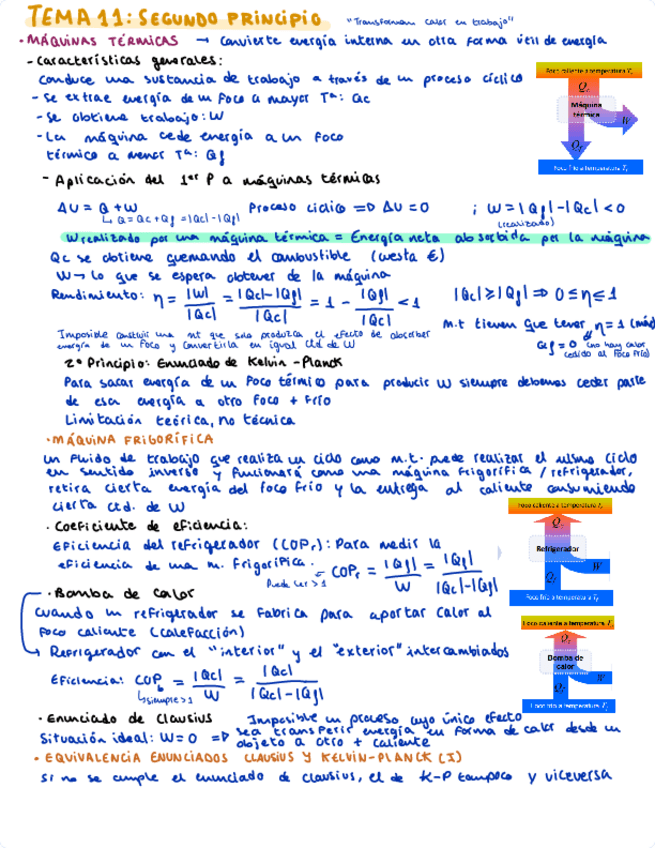 TEMA 11: SEGUNDO PRINCIPIO "Transforman calor en trabajo"
· MÁQUINAS TÉRMICAS → Convierte energía interna en otra forma útil de energía
- Características generales:
Conduce una sustancia de trabajo a través de un proceso cíclico
- Se extrae energía de un foco a mayor Tª: Qc
- Se obtiene trabajo: W
- La máquina cede energía a un foco
térmico a menor Tª: Qf
Foco caliente a temperatura Tc
Qc
Máquina
térmica
W
Qf
Foco frío a temperatura Tf
- Aplicación del 1er P a máquinas térmicas
ΔU = Q + W Proceso cíclico => ΔU = 0 ; W = |Qf| - |Qc| < 0
↳ Q = Qc + Qf = |Qc| - |Qf| (realizado)
W realizado por una máquina térmica = Energía neta absorbida por la máquina
Qc se obtiene quemando el combustible (cuesta €)
W → lo que se espera obtener de la máquina
Rendimiento: η = |W| / |Qc| = |Qc| - |Qf| / |Qc| = 1 - |Qf| / |Qc| < 1 |Qc| ≥ |Qf| => 0 ≤ η ≤ 1
m.t tienen que tener η = 1 (máx
Qf = 0 (no hay calor
cedido al foco frío)
Imposible construir una mt que solo produzca el efecto de absorber
energía de un foco y convertirla en igual ctd de W
2º Principio: Enunciado de Kelvin - Planck
Para sacar energía de un foco térmico para producir W siempre debemos ceder parte
de esa energía a otro foco + frío
Limitación teórica, no técnica
· MÁQUINA FRIGORÍFICA
Un fluido de trabajo que realiza un ciclo como m.t. puede realizar el mismo ciclo
en sentido inverso y funcionará como una máquina frigorífica / refrigerador,
retira cierta energía del foco frío y la entrega al caliente consumiendo
cierta ctd. de W
· Coeficiente de eficiencia:
Eficiencia del refrigerador (COPr): Para medir la
eficiencia de una m. frigorífica.
Puede ser > 1
COPr = |Qf| / W = |Qf| / |Qc| - |Qf|
Foco caliente a temperatura Tc
Qc
Refrigerador
W
Qf
Foco frío a temperatura Tf
· Bomba de calor
Cuando un refrigerador se fabrica para aportar calor al
foco caliente (calefacción)
↳ Refrigerador con el "interior" y el "exterior" intercambiados
Eficiencia: COPb = |Qc| / W = |Qc| / |Qc| - |Qf|
↳ siempre > 1
Foco caliente a temperatura Tc
Qc
Bomba de
calor
W
Qf
Foco frío a temperatura Tf
· Enunciado de Clausius Imposible un proceso cuyo único efecto
Situación ideal: W = 0 => sea transferir energía en forma de calor desde un
objeto a otro + caliente
· EQUIVALENCIA ENUNCIADOS CLAUSIUS Y KELVIN-PLANCK (I)
Si no se cumple el enunciado de Clausius, el de K-P tampoco y viceversa